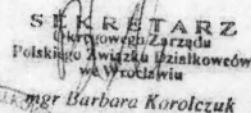 SEKRETARZ
Okręgowego Zarządu
Polskiego Związku Działkowców
we Wrocławiu
mgr Barbara Korolczuk